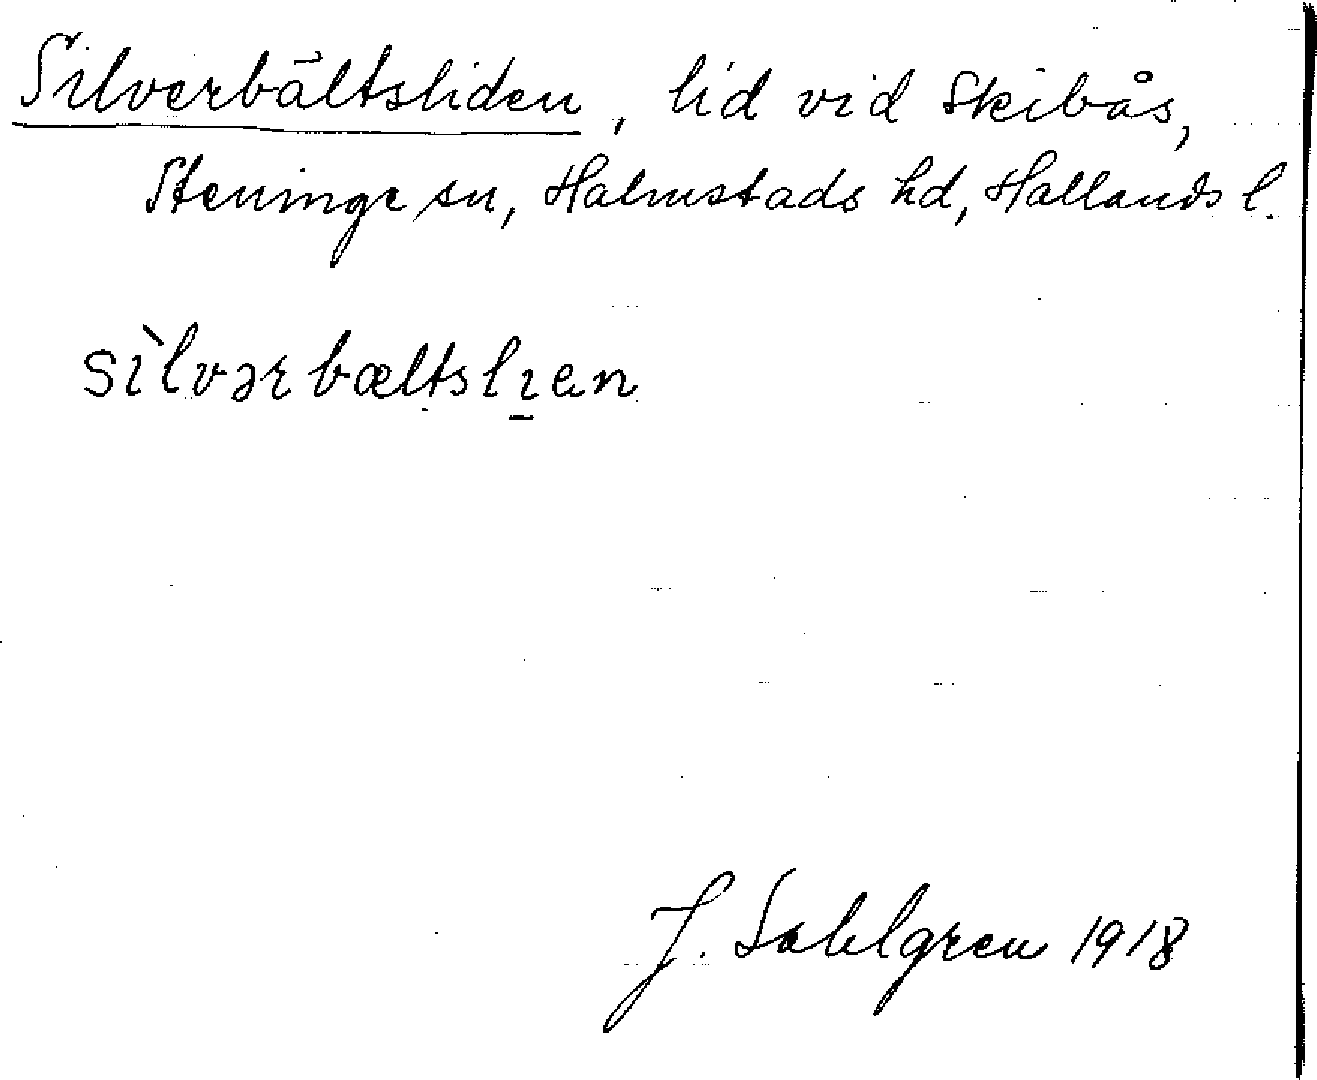 Silverbältsliden, lid vid Skibås,
Steninge sn, Halmstads hd, Hallands l.
sìlvərbæltslı̱an
J. Sahlgren 1918